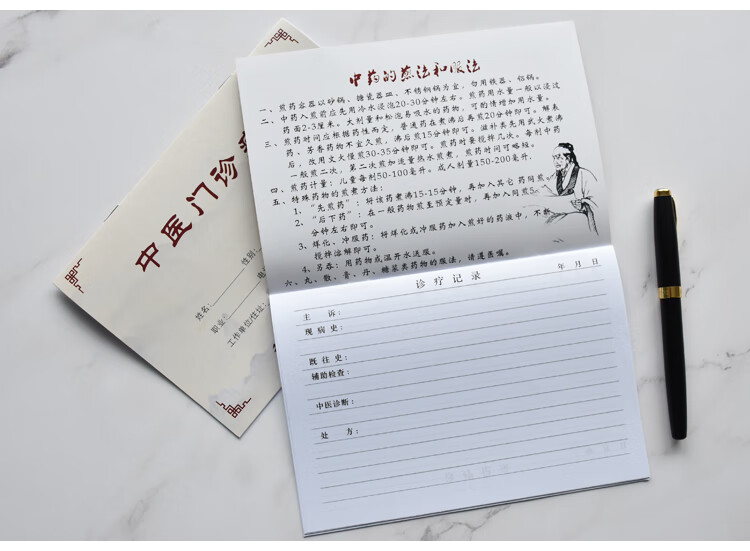 中医门诊
姓名:
性别:
职业
工作单位/住址:
中药的煎法和服法
一、煎药容器以砂锅、搪瓷器皿、不锈钢锅为宜,勿用铁器、铝锅。
二、中药入煎前应先用冷水浸泡20-30分钟左右。煎药用水量一般以浸过
药面2-3厘米。大剂量和松泡易吸水的药物,可酌情增加用水量。
三、煎药时间应根据药性而定,普通药在煮沸后再煎20分钟即可。解表
药、芳香药物不宜久煎,沸后煎15分钟即可。滋补类先用武火煮沸
后,改用文火慢煎30-35分钟即可。煎药时要搅拌几次。每剂中药
一般煎二次,第二次煎加适量热水煎煮,煎药时间可略短。
四、煎药计量:儿童每剂50-100毫升,成人剂量150-200毫升。
五、特殊药物的煎煮方法:
1、“先煎药”:将该药煮沸15-15分钟,再加入其它 药同煎
2、“后下药”:在一般药物煎至预定量时,再加入同煎5
分钟左右即可。
3、烊化、冲服药:将烊化或冲服药加入煎好的药液中,不断
搅拌溶解即可。
4、另吞:用药物或温开水送服。
六、丸、散、膏、丹、糖浆类药物的服法,请遵医嘱。
诊疗记录
年 月 日
主 诉:
现病史:
既往史:
辅助检查:
中医诊断:
处 方: